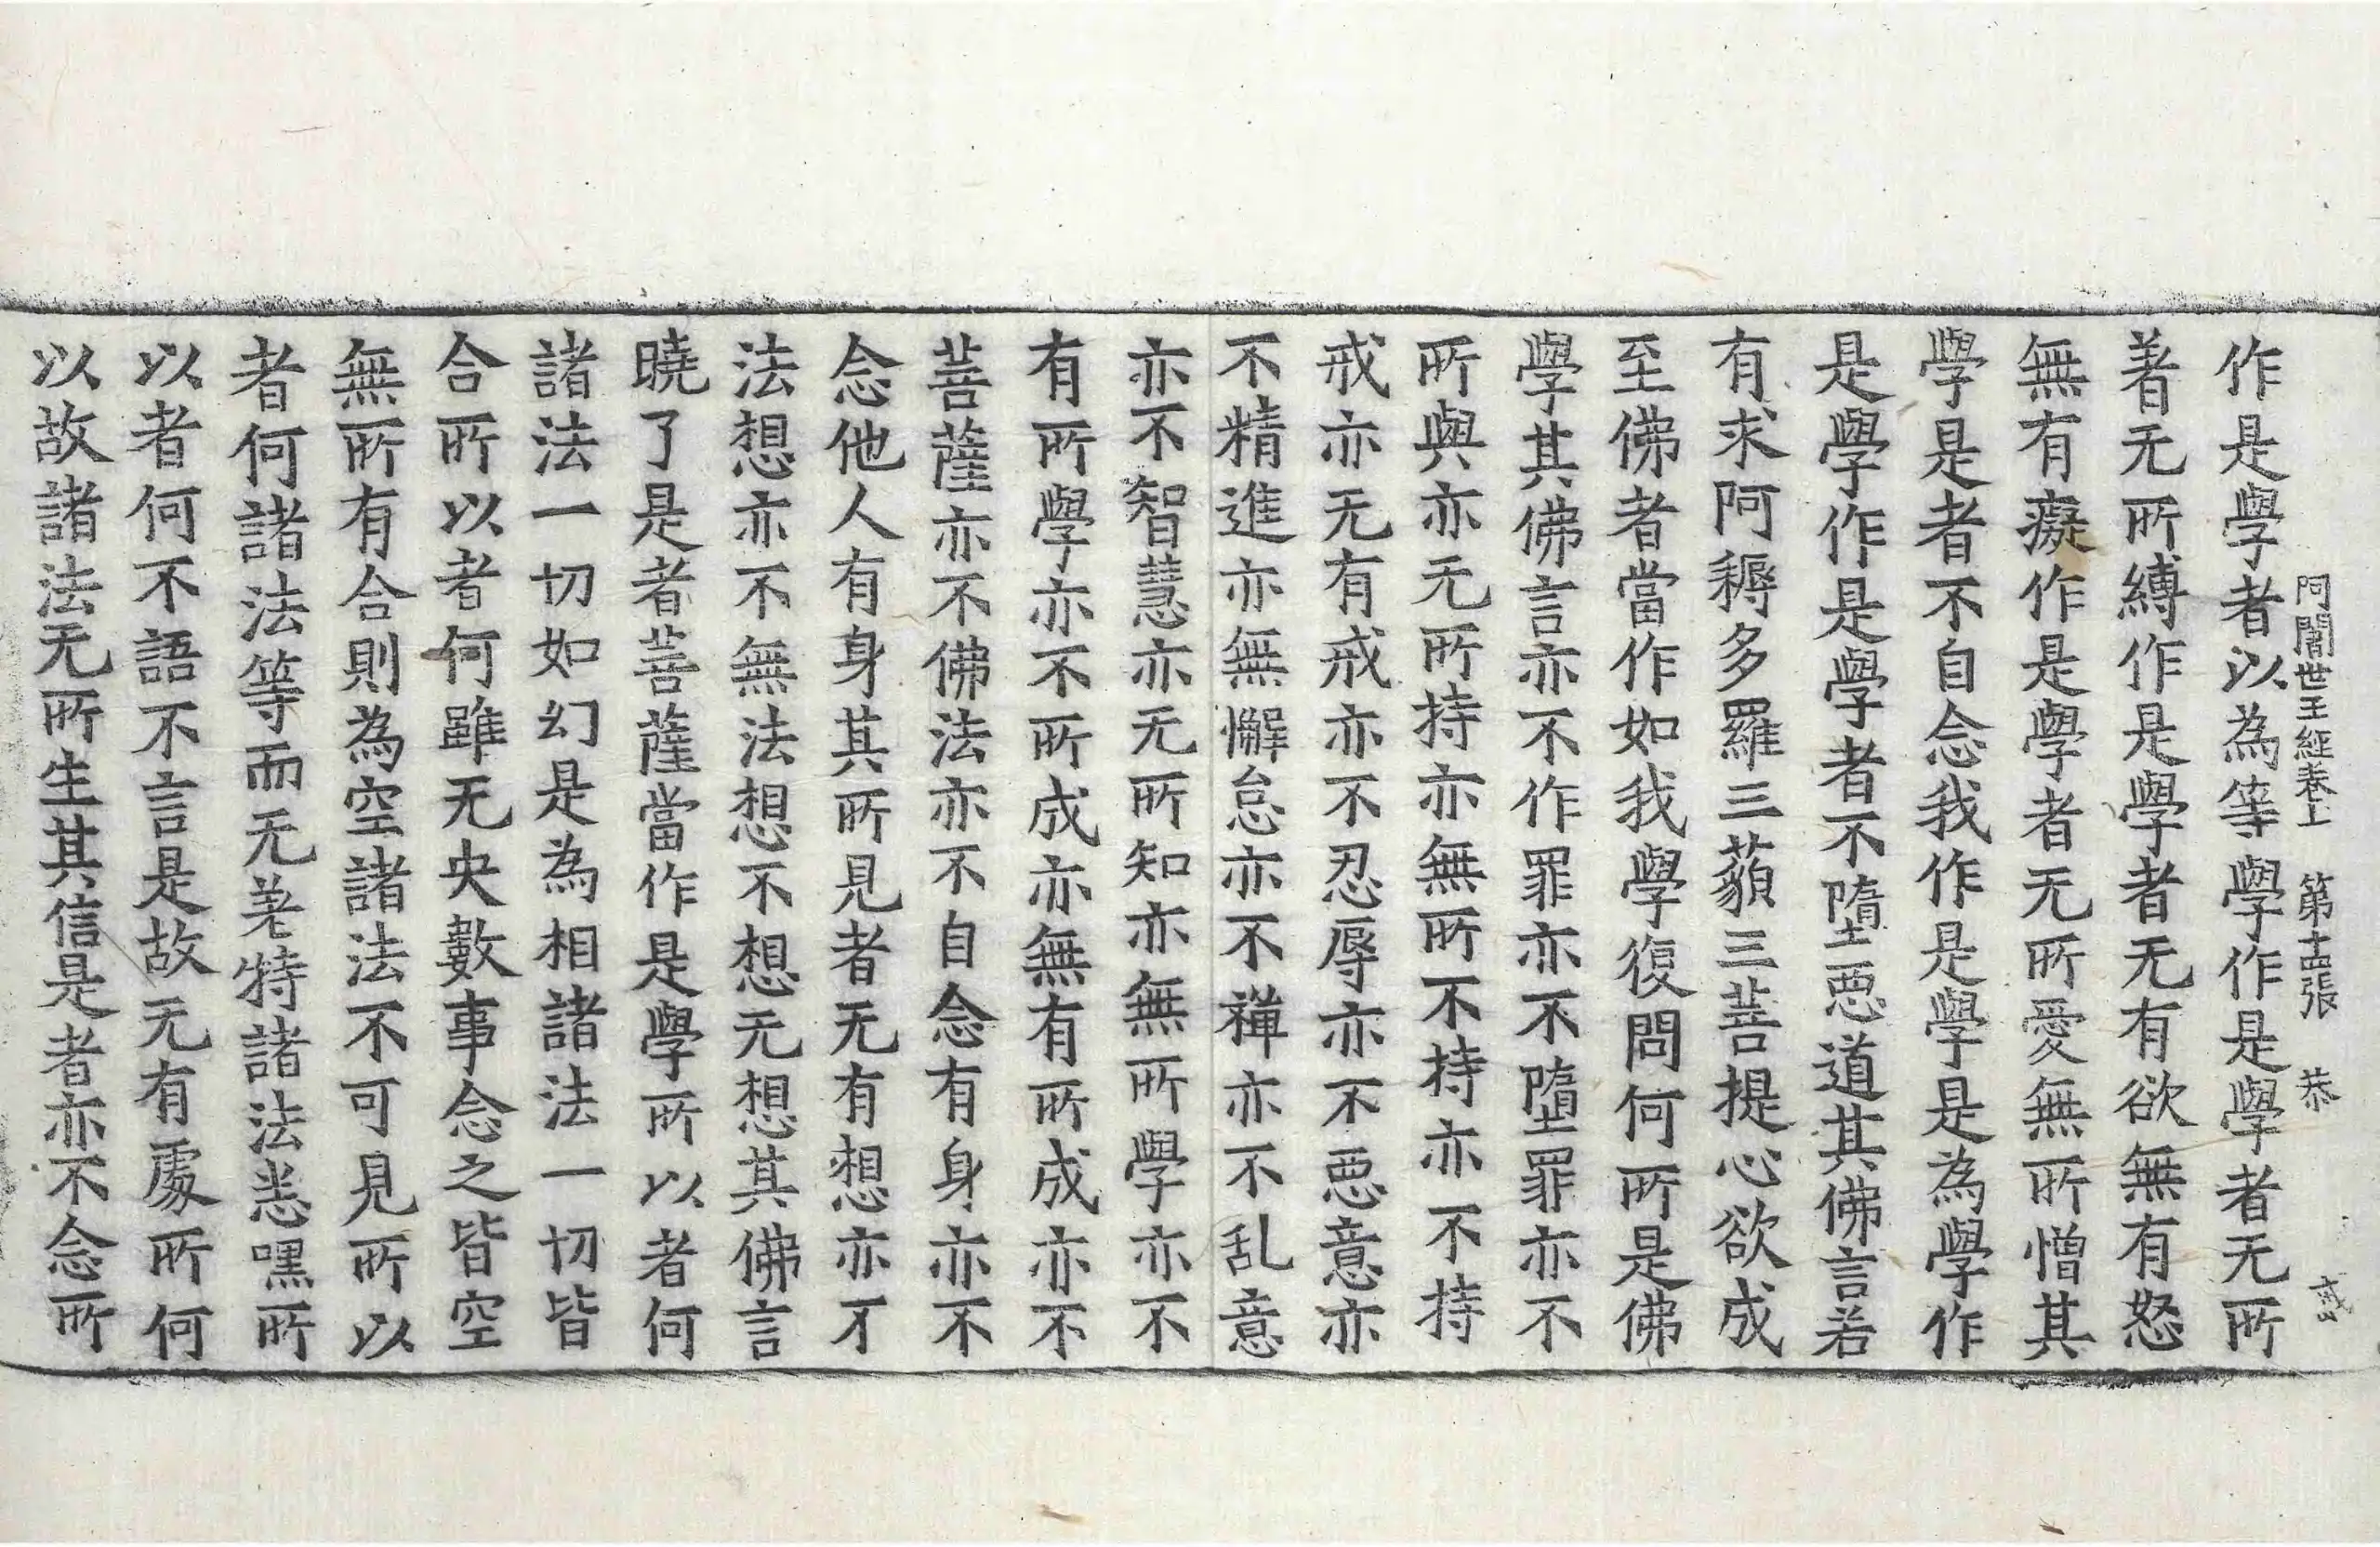 阿闍世王經卷上 第十四張 恭
作是學者以為等學作是學者无所
著无所縛作是學者无有欲無有怒
無有癡作是學者无所愛無所憎其
學是者不自念我作是學是為學作
是學作是學者不墮惡道其佛言若
有求阿耨多羅三藐三菩提心欲成
至佛者當作如我學復問何所是佛
學其佛言亦不作罪亦不墮罪亦不
所與亦无所持亦無所不持亦不持
戒亦无有戒亦不忍辱亦不惡意亦
不精進亦無懈怠亦不禪亦不乱意
亦不智慧亦无所知亦無所學亦不
有所學亦不所成亦無有所成亦不
菩薩亦不佛法亦不自念有身亦不
念他人有身其所見者无有想亦不
法想亦不無法想不想无想其佛言
曉了是者菩薩當作是學所以者何
諸法一切如幻是為相諸法一切皆
合所以者何雖无央數事念之皆空
無所有合則為空諸法不可見所以
者何諸法等而无差特諸法悉嘿所
以者何不語不言是故无有處所何
以故諸法无所生其信是者亦不念所